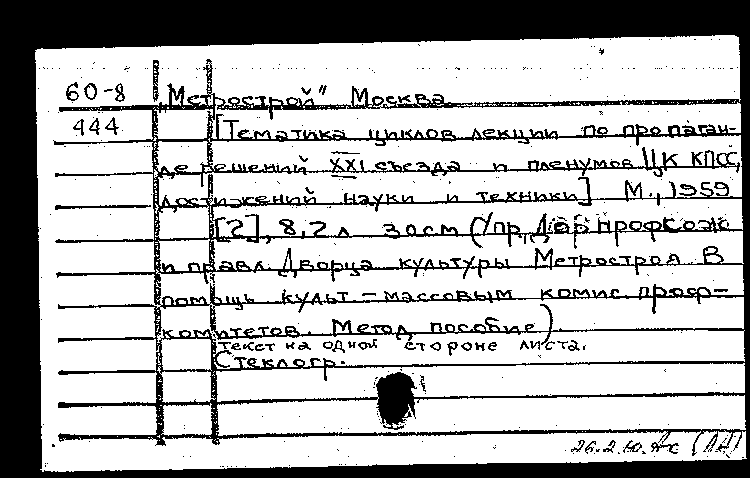 60-8 "Метрострой" Москва
444 [Тематика циклов лекции по пропаган-
де решений XXI съезда и пленумов ЦК КПСС,
достижений науки и техники] М., 1959
[2], 8,2 л 30см (Упр, Дор профсож
и правл. Дворца культуры Метростроя В
помощь культ-массовым комис. проф-
комитетов. Метод, пособие).
текст на одной стороне листа.
Стеклогр.
26.2.